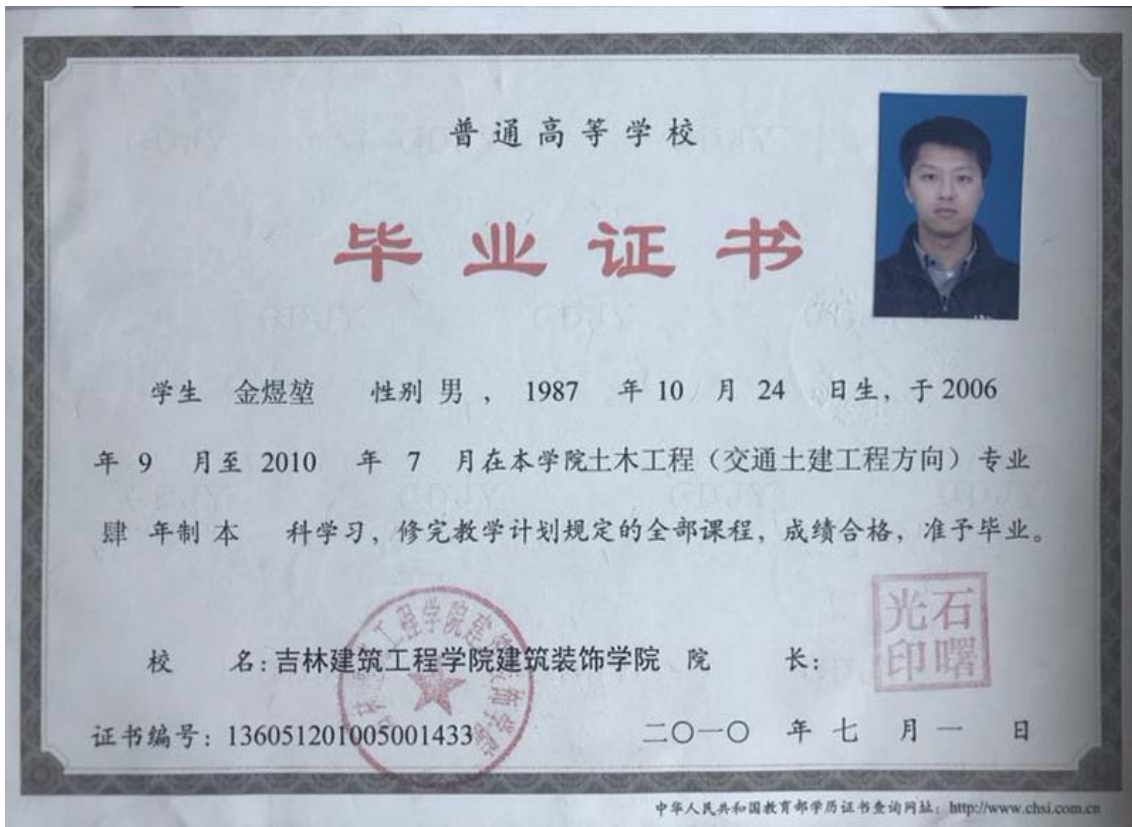 普通高等学校
毕业证书
学生 金煜堃 性别 男 ， 1987 年 10 月 24 日生，于 2006
年 9 月至 2010 年 7 月在本学院土木工程（交通土建工程方向）专业
肆 年制 本 科学习，修完教学计划规定的全部课程，成绩合格，准予毕业。
光石
印曙
校 名：吉林建筑工程学院建筑装饰学院 院 长：
证书编号：136051201005001433 二〇一〇 年 七 月 一 日
中华人民共和国教育部学历证书查询网址：http://www.chsi.com.cn